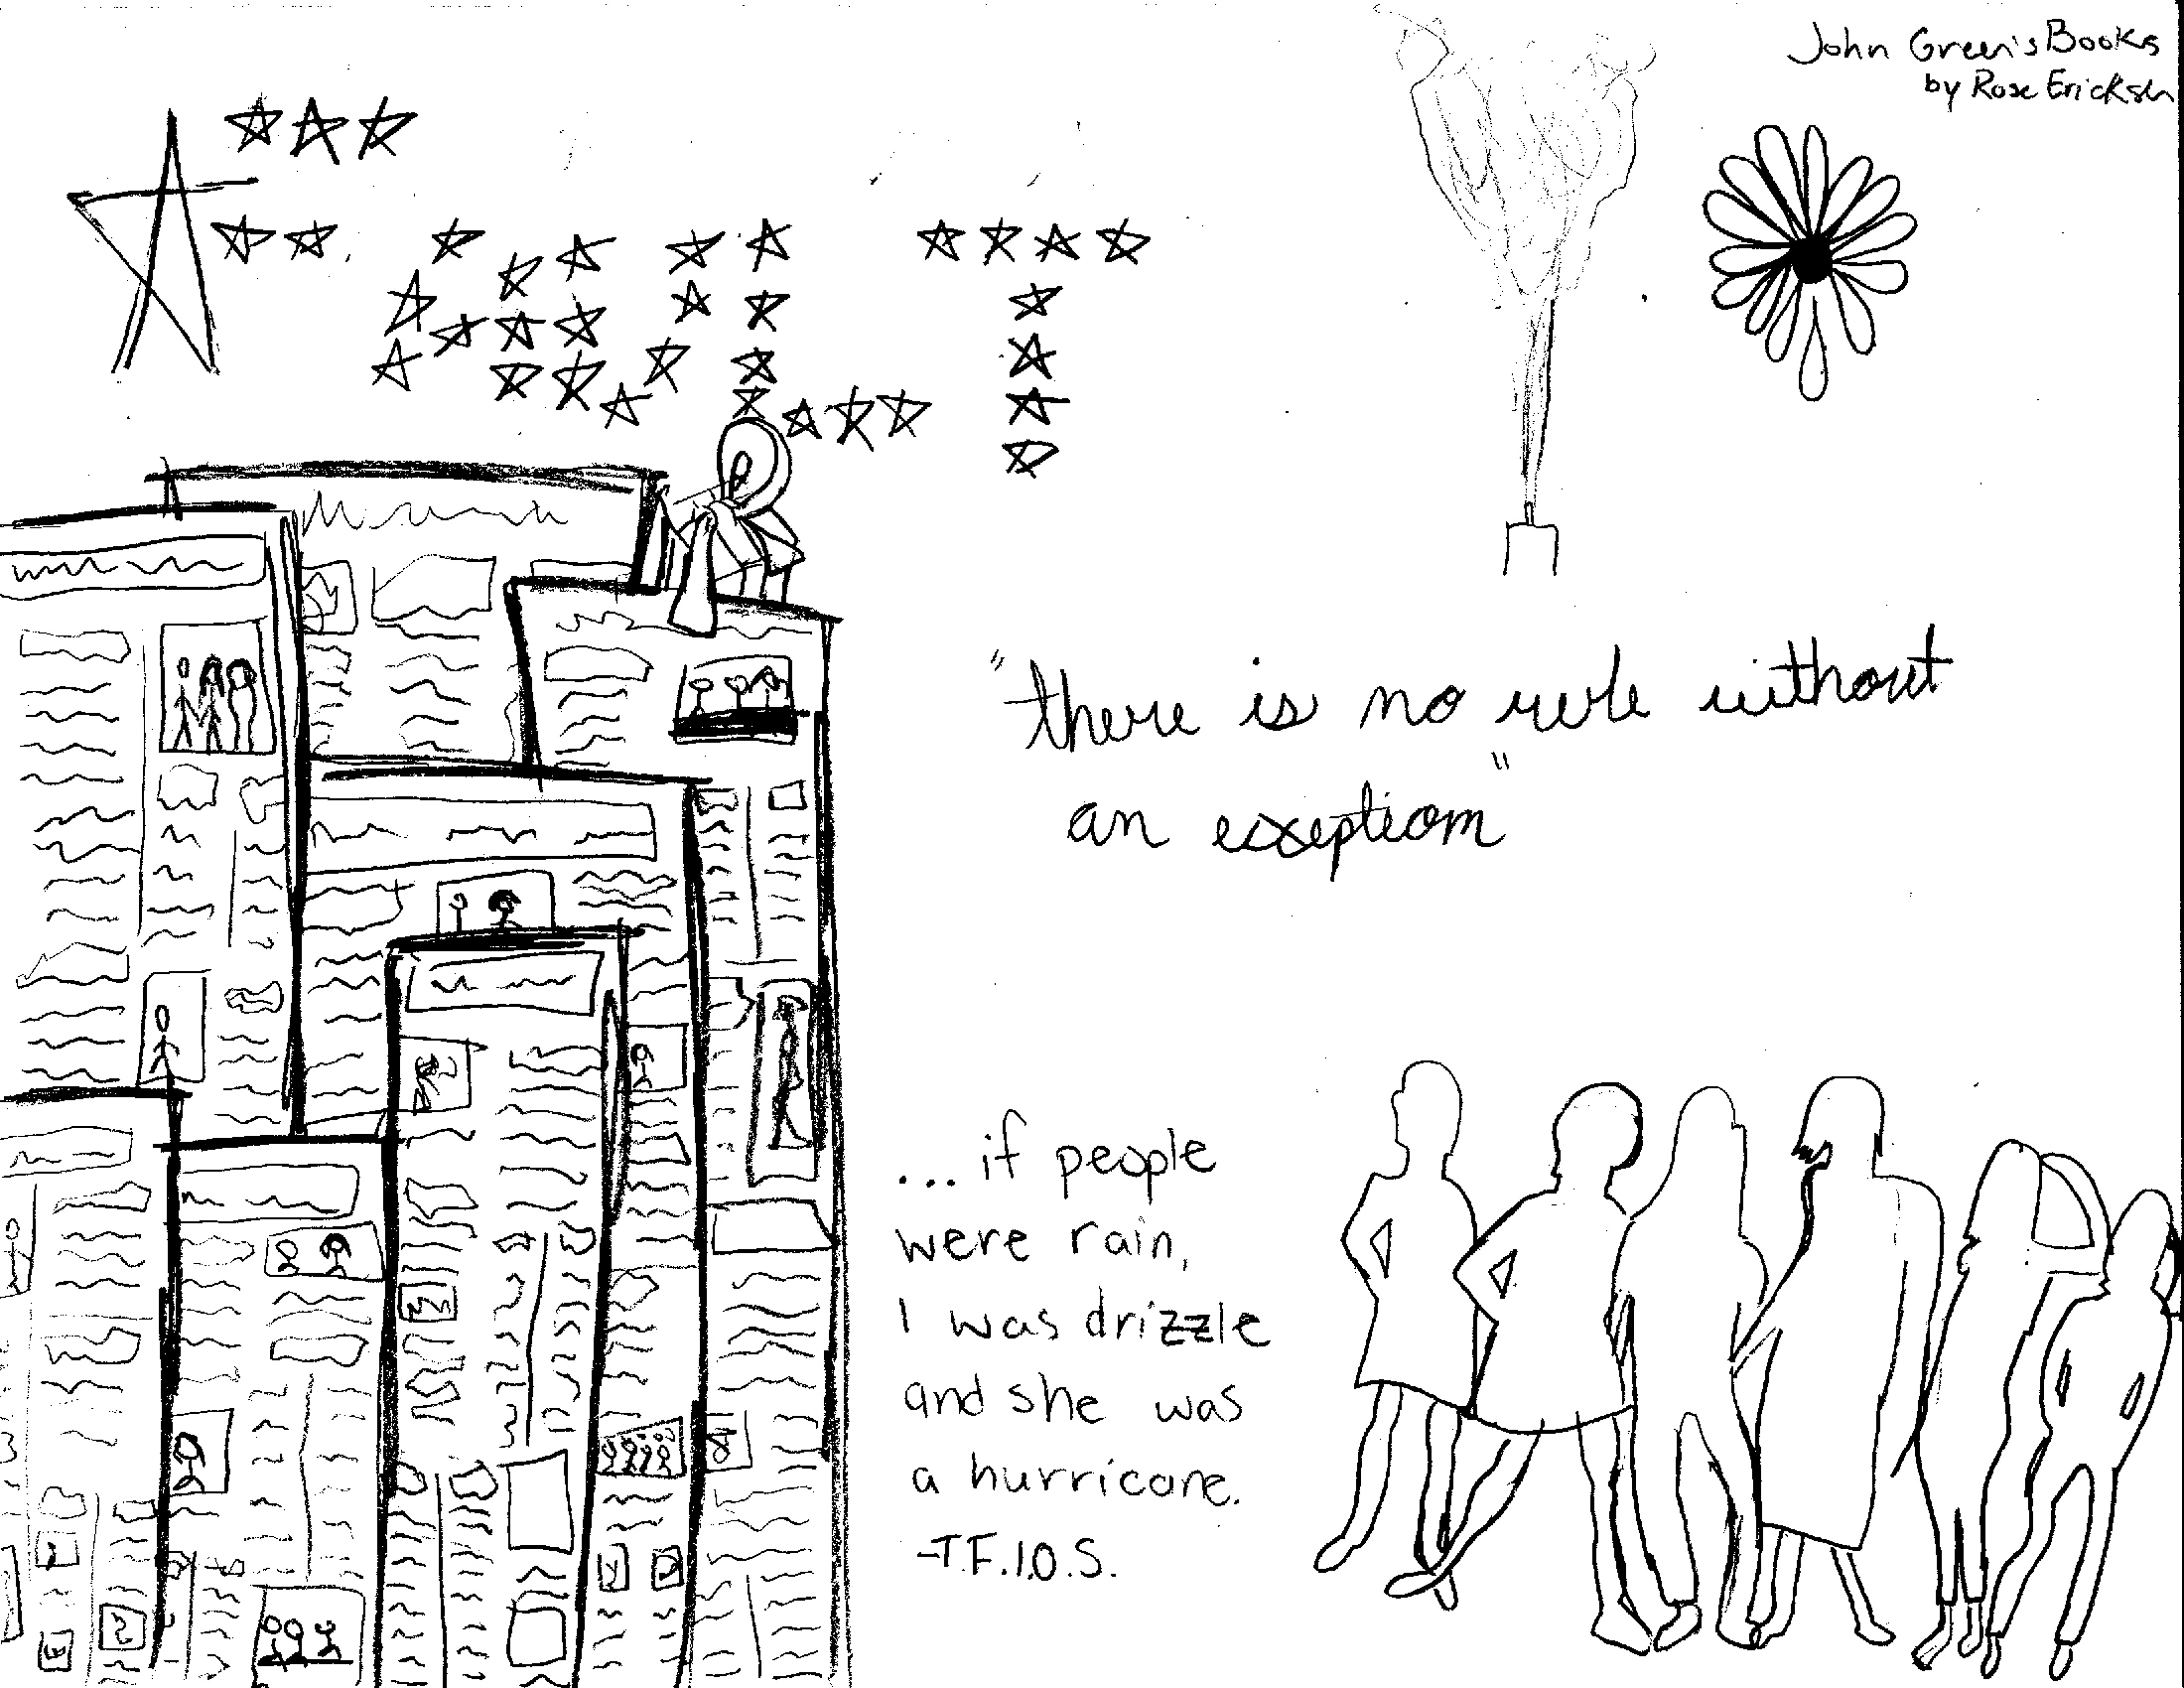 John Green's Books
by Rose
FAULT
"there is no rule without
an exeption"
...if people
were rain,
I was drizzle
and she was
a hurricane.
-T.F.I.O.S.